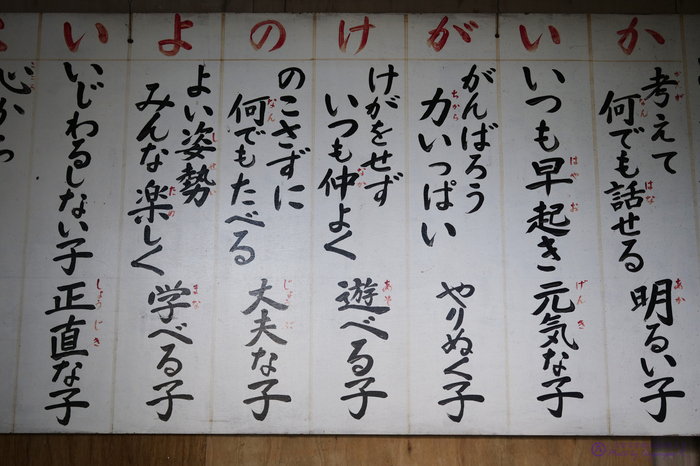 か
考えて
何でも話せる
明るい子
い
いつも早起き元気な子
が
がんばろう
力いっぱい
やりぬく子
け
けがをせず
いつも仲よく
遊べる子
の
のこさずに
何でもたべる
丈夫な子
よ
よい姿勢
みんな楽しく
学べる子
い
いじわるしない子
正直な子
心から